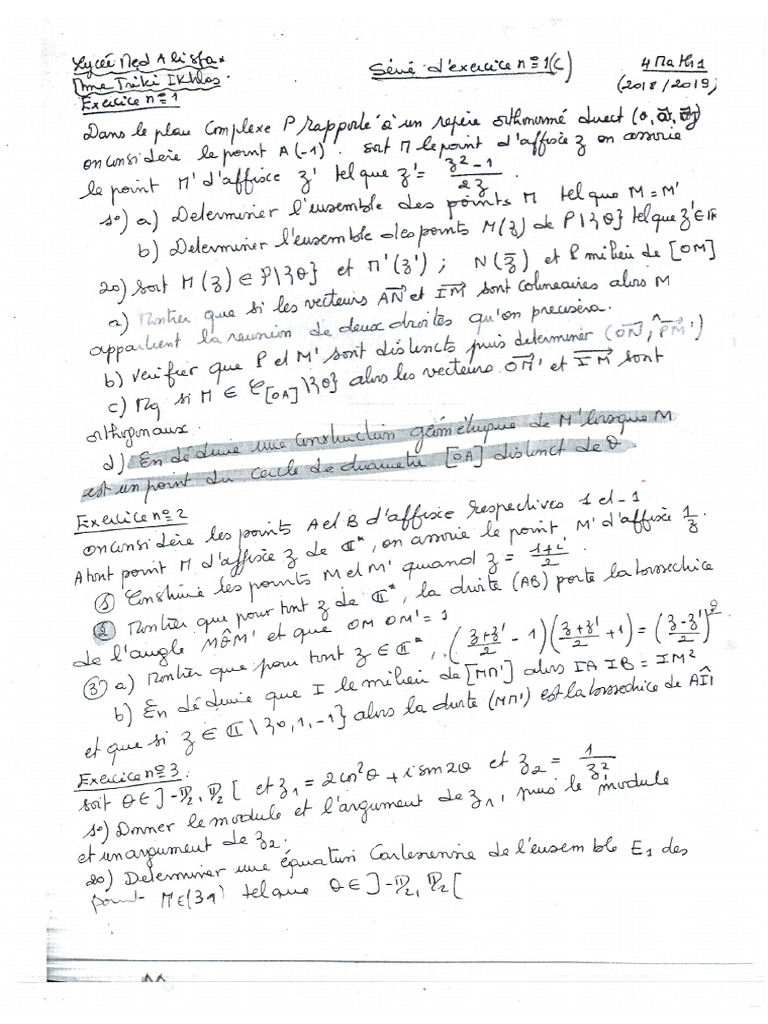 Lycée Med Ali sfax
Série d'exercice n° 1 (C)
4 Maths 1
Mme Triki Ikhlas.
(2018/2019)
Exercice n° 1
Dans le plan complexe P rapporté à un repère orthonormé direct (O, u, v)
on considère le point A(-1). soit M le point d'affixe z on associe
le point M' d'affixe z' tel que z' = (z² - 1)/(2z).
1°) a) Determiner l'ensemble des points M tel que M = M'
b) Determiner l'ensemble des points M(z) de P\{O} tel que z' ∈ iR
2°) soit M(z) ∈ P\{O} et M'(z') ; N(z̄) et P milieu de [OM]
a) Montrer que si les vecteurs AN et IM sont colineaires alors M
appartient la reunion de deux droites qu'on precisera.
b) Verifier que P et M' sont distincts puis determiner (ON, PM')
c) Mq si M ∈ C[OA]\{O} alors les vecteurs OM' et IM sont
orthogonaux.
d) En déduire une construction géométrique de M' lorsque M
est un point du cercle de diametre [OA] distinct de O.
Exercice n° 2
on considère les points A et B d'affixe respectives 1 et -1
A tout point M d'affixe z de C*, on associe le point M' d'affixe 1/z.
① Construire les points M et M' quand z = (1+i)/2.
② Montrer que pour tout z de C*, la droite (AB) porte la bissectrice
de l'angle MÔM' et que OM OM' = 1
③ a) Montrer que pour tout z ∈ C*, ((z+z')/2 - 1)((z+z')/2 + 1) = ((z-z')/2)²
b) En déduire que I le milieu de [MM'] alors IA IB = IM²
et que si z ∈ C\{0, 1, -1} alors la droite (MM') est la bissectrice de AÎB
Exercice n° 3 :
soit θ ∈ ]-π/2, π/2[ et z₁ = 2cos²θ + i sin2θ et z₂ = 1/z²
1°) Donner le module et l'argument de z₁, puis le module
et un argument de z₂.
2°) Determiner une équation Cartesienne de l'ensemble E₁ des
point M(z₁) tel que θ ∈ ]-π/2, π/2[